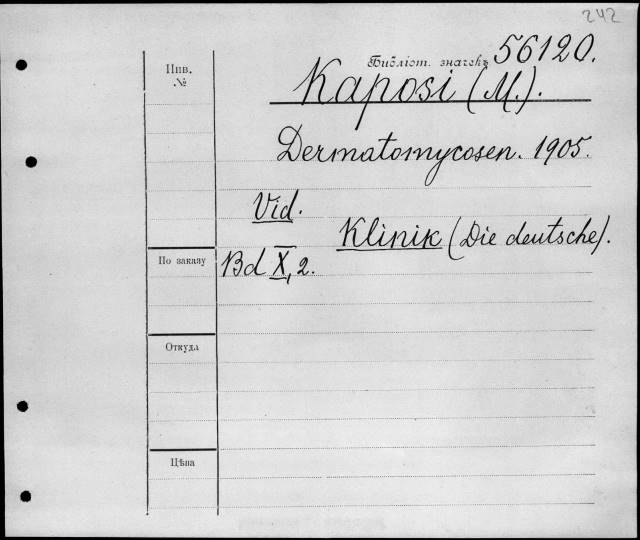 242
Инв.
№
Библіот. значекъ 56120.
Kaposi (M.).
Dermatomycosen. 1905.
Vid.
Klinik (Die deutsche).
По заказу
Bd X, 2.
Откуда
Цѣна